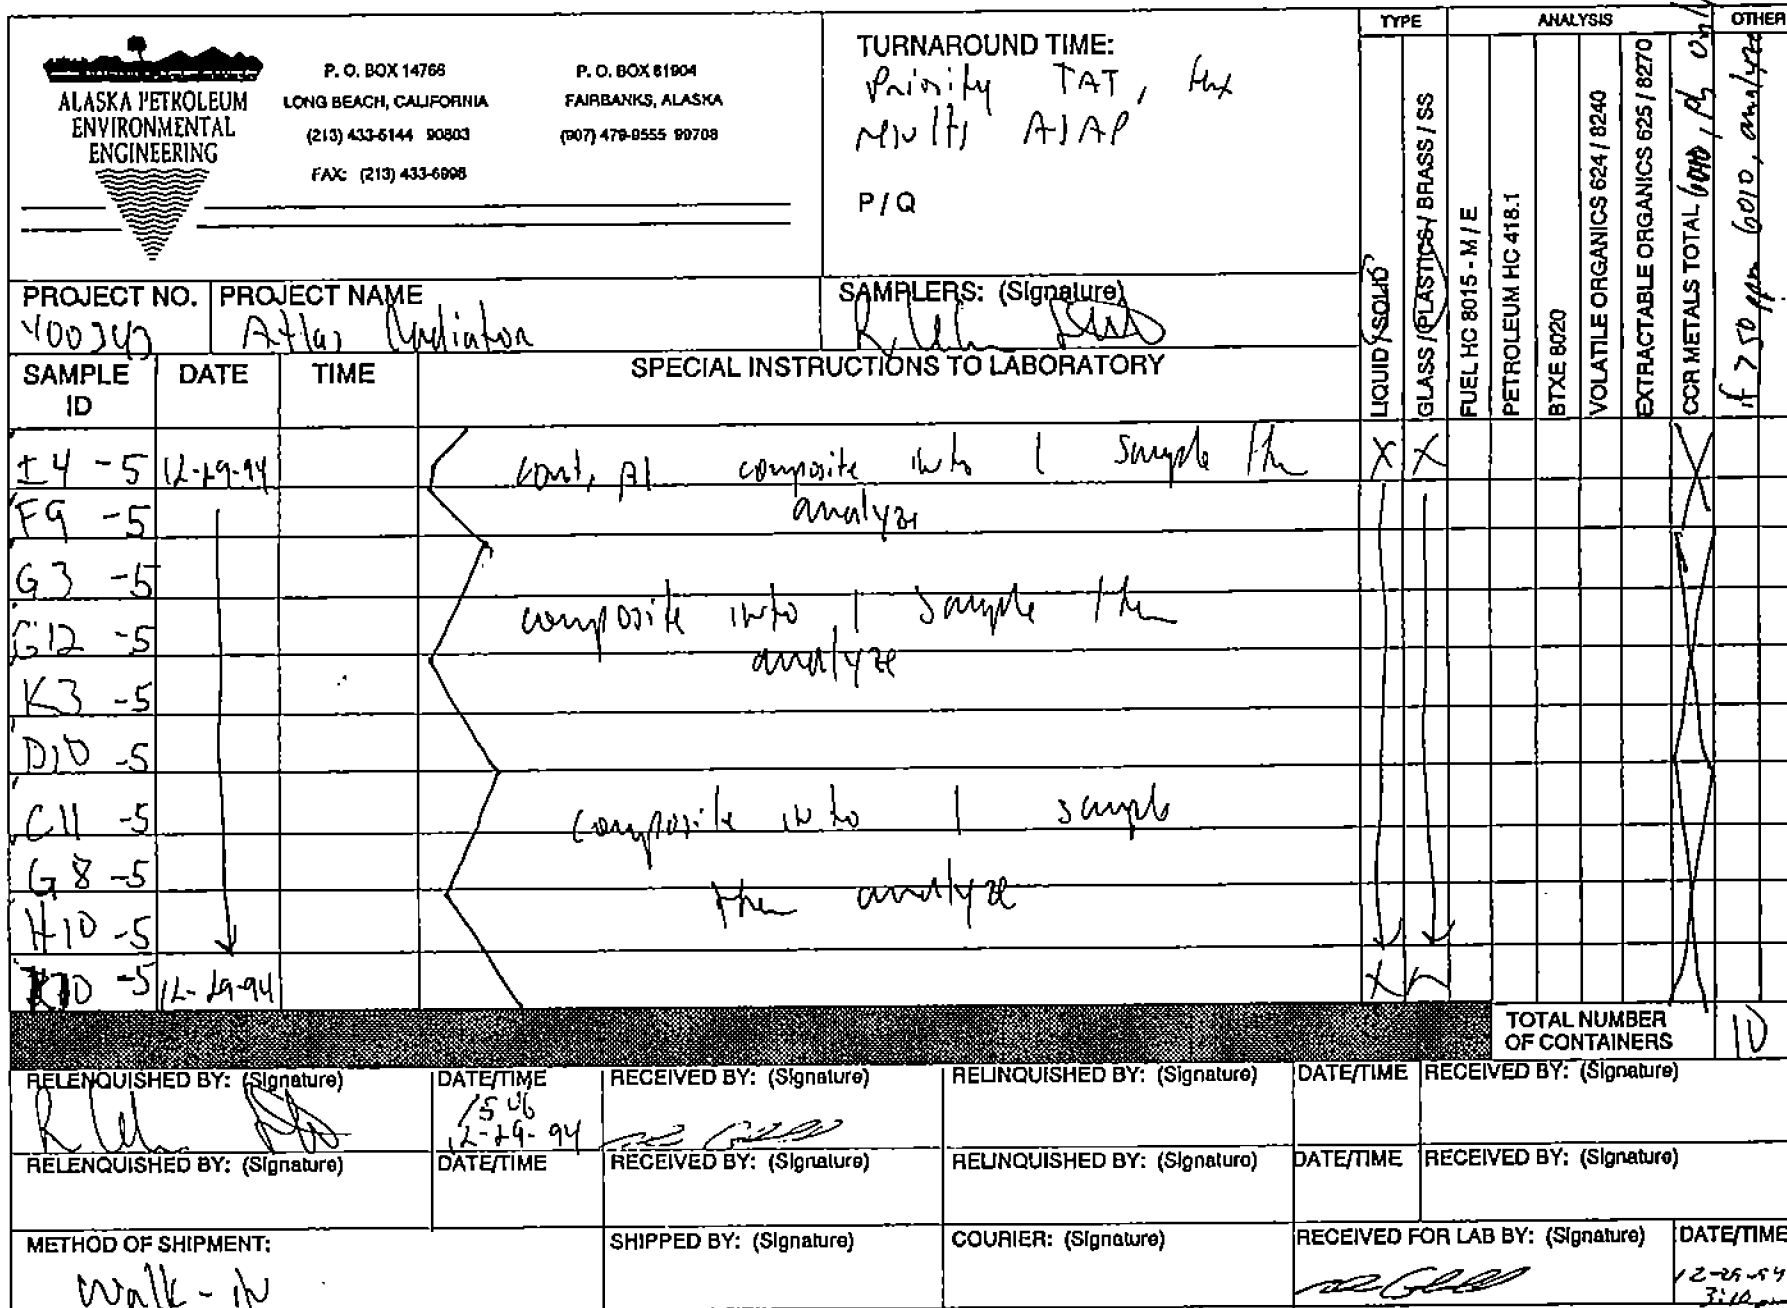 ALASKA PETROLEUM
ENVIRONMENTAL
ENGINEERING
P. O. BOX 14766
LONG BEACH, CALIFORNIA
(213) 433-5144 90803
FAX: (213) 433-6998
P. O. BOX 81904
FAIRBANKS, ALASKA
(907) 479-9555 99708
TURNAROUND TIME:
Priority TAT, fax
results ASAP
P / Q
TYPE
ANALYSIS
OTHER
LIQUID / SOLID
GLASS / PLASTICS / BRASS / SS
FUEL HC 8015 - M / E
PETROLEUM HC 418.1
BTXE 8020
VOLATILE ORGANICS 624 / 8240
EXTRACTABLE ORGANICS 625 / 8270
CCR METALS TOTAL 6010, Pb only
if > 50 ppm 6010, analyze
PROJECT NO.
PROJECT NAME
Atlas Radiator
SAMPLERS: (Signature)
SAMPLE ID
DATE
TIME
SPECIAL INSTRUCTIONS TO LABORATORY
I4 -5 12-29-94 composite into 1 sample then X X
F9 -5 analyze
G3 -5
G12 -5 composite into 1 sample then
K3 -5 analyze
D10 -5
C11 -5 composite into 1 sample
G8 -5
H10 -5 then analyze
K10 -5 12-29-94 X
TOTAL NUMBER
OF CONTAINERS
10
RELENQUISHED BY: (Signature)
DATE/TIME
12-29-94
RECEIVED BY: (Signature)
RELINQUISHED BY: (Signature)
DATE/TIME
RECEIVED BY: (Signature)
RELENQUISHED BY: (Signature)
DATE/TIME
RECEIVED BY: (Signature)
RELINQUISHED BY: (Signature)
DATE/TIME
RECEIVED BY: (Signature)
METHOD OF SHIPMENT:
Walk-in
SHIPPED BY: (Signature)
COURIER: (Signature)
RECEIVED FOR LAB BY: (Signature)
DATE/TIME
12-29-94
3:10 pm